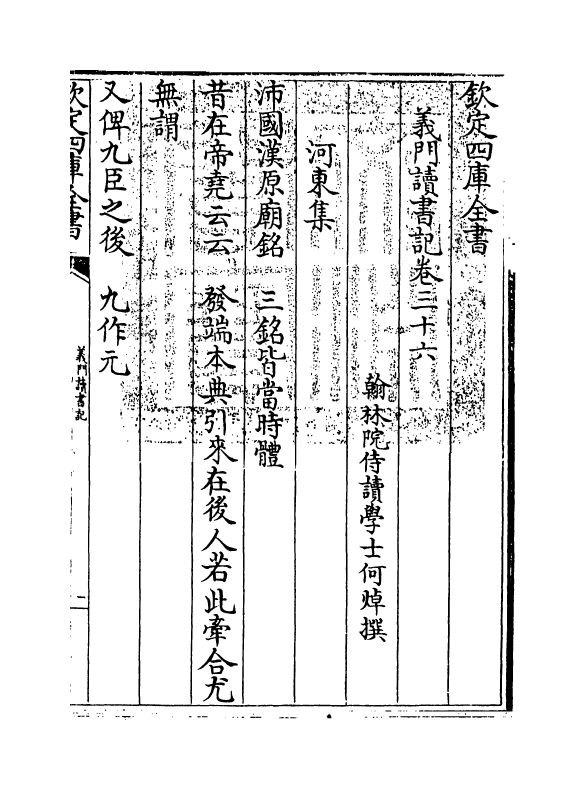 欽定四庫全書
義門讀書記卷三十六
翰林院侍讀學士何焯撰
河東集
沛國漢原廟銘　三銘皆當時體
昔在帝堯云云　發端本典引來在後人若此牽合尤
無謂
又俾九臣之後　九作元
欽定四庫全書
義門讀書記
一